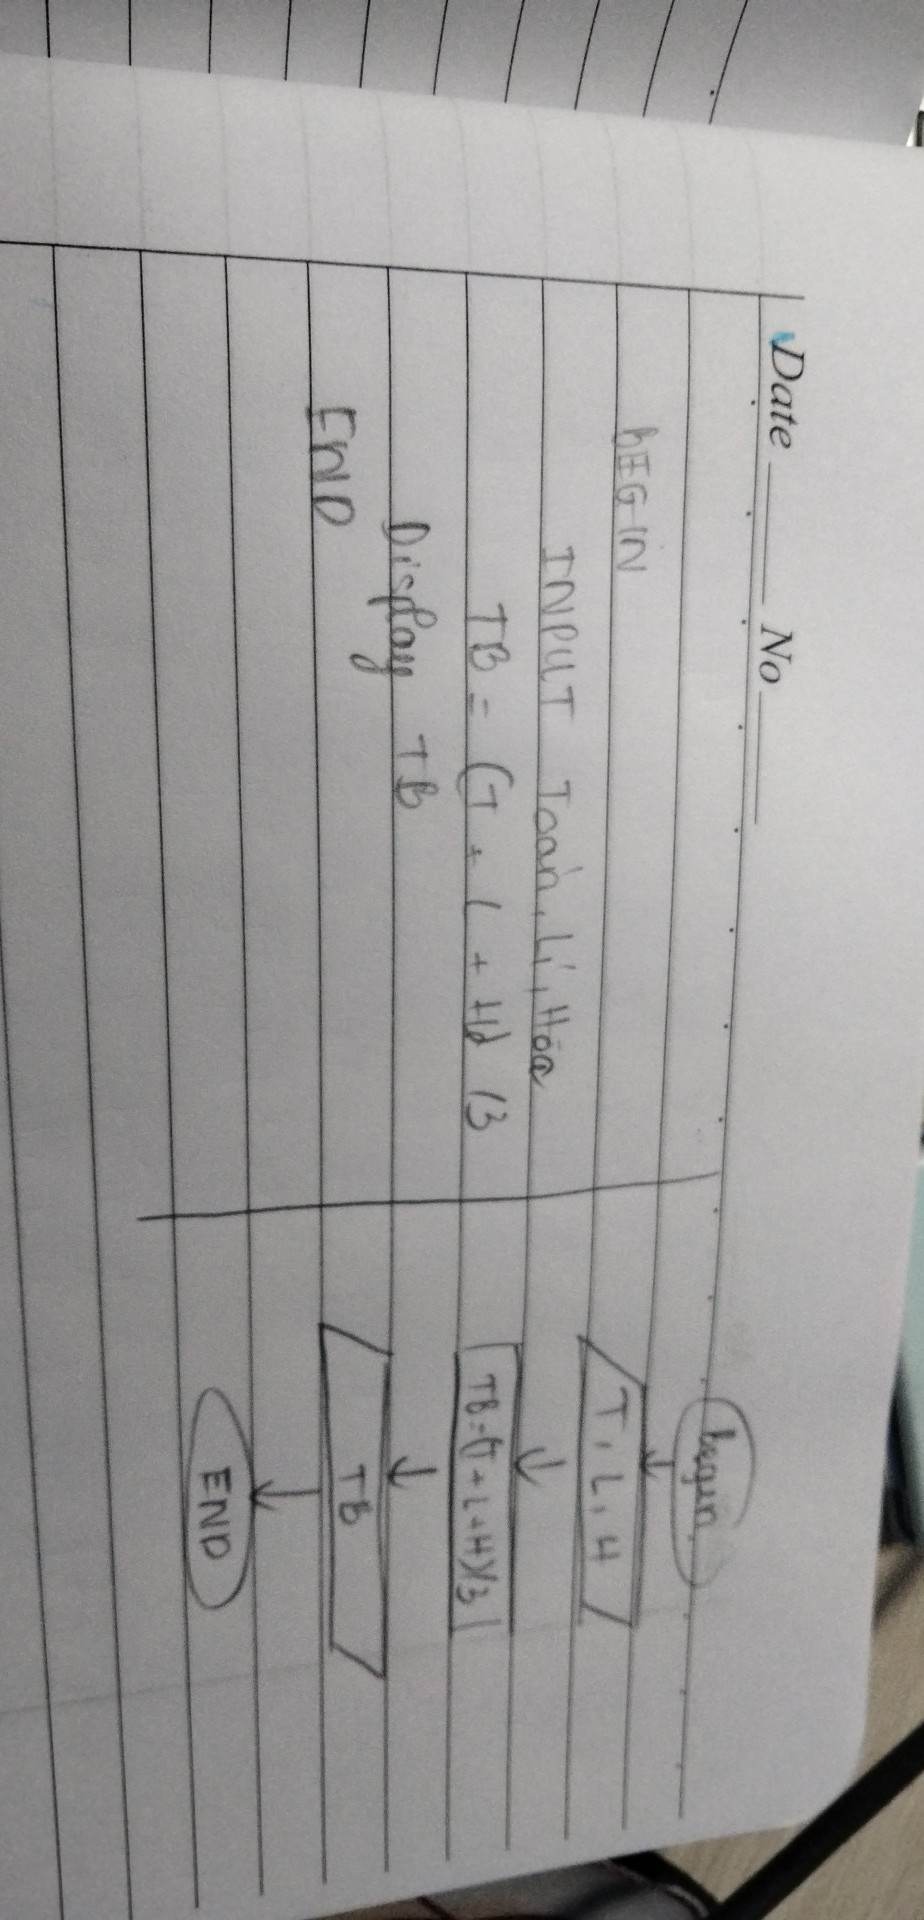 Date No
bEGIN
INPUT Toán, Lí, Hóa
TB = (T + L + H) /3
Display TB
END
begin
T, L, H
TB = (T + L + H)/3
TB
END